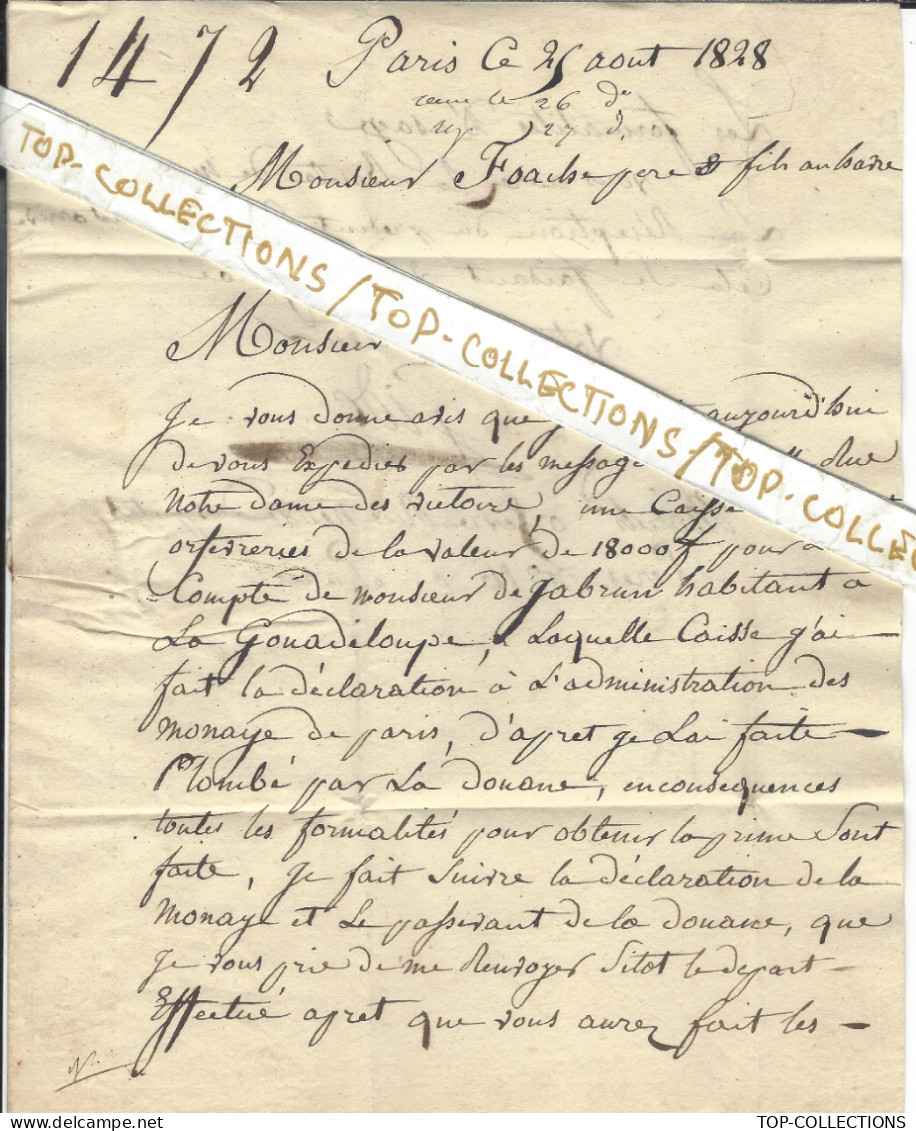 1472 Paris Ce 25 aout 1828
recu le 26 do
27 do
Monsieur Foache pere & fils au havre
TOP-COLLECTIONS / TOP-COLLECTIONS / TOP-COLLEC
Monsieur
Je vous donne avis que aujourd'hui
de vous Expedies par les message Rue
Notre dame des victoire, une Caisse
orfevreries de la valeur de 18000f pour
Compte de monsieur de jabrun habitant a
La Gouadeloupe, Laquelle Caisse g'ai
fait la déclaration à L'administration des
monaye de paris, d'apret ge Lai faite
Plombé par La douane, enconsequences
toutes les formalités pour obtenir la prime Sont
faite, Je fait Suivre la déclaration de la
Monaye et Le passavant de la douane, que
Je vous prie de me Renvoyer Sitot le depart
Effectué apret que vous aurez fait les
TOP-COLLECTIONS